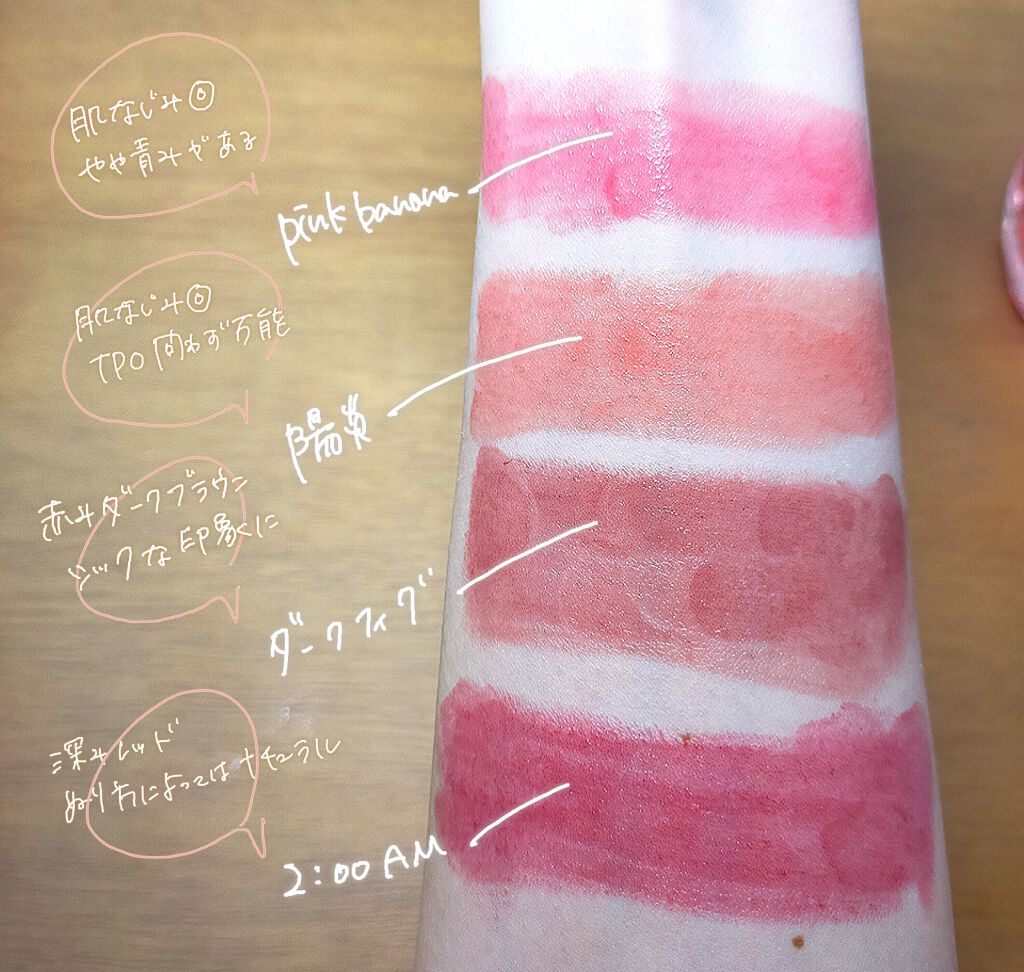 肌なじみ◎
やや青みがある
pink banana
肌なじみ◎
TPO問わず万能
陽炎
赤みダークブラウン
シックな印象に
ダークフィグ
深みレッド
ぬり方によってはナチュラル
2:00 AM